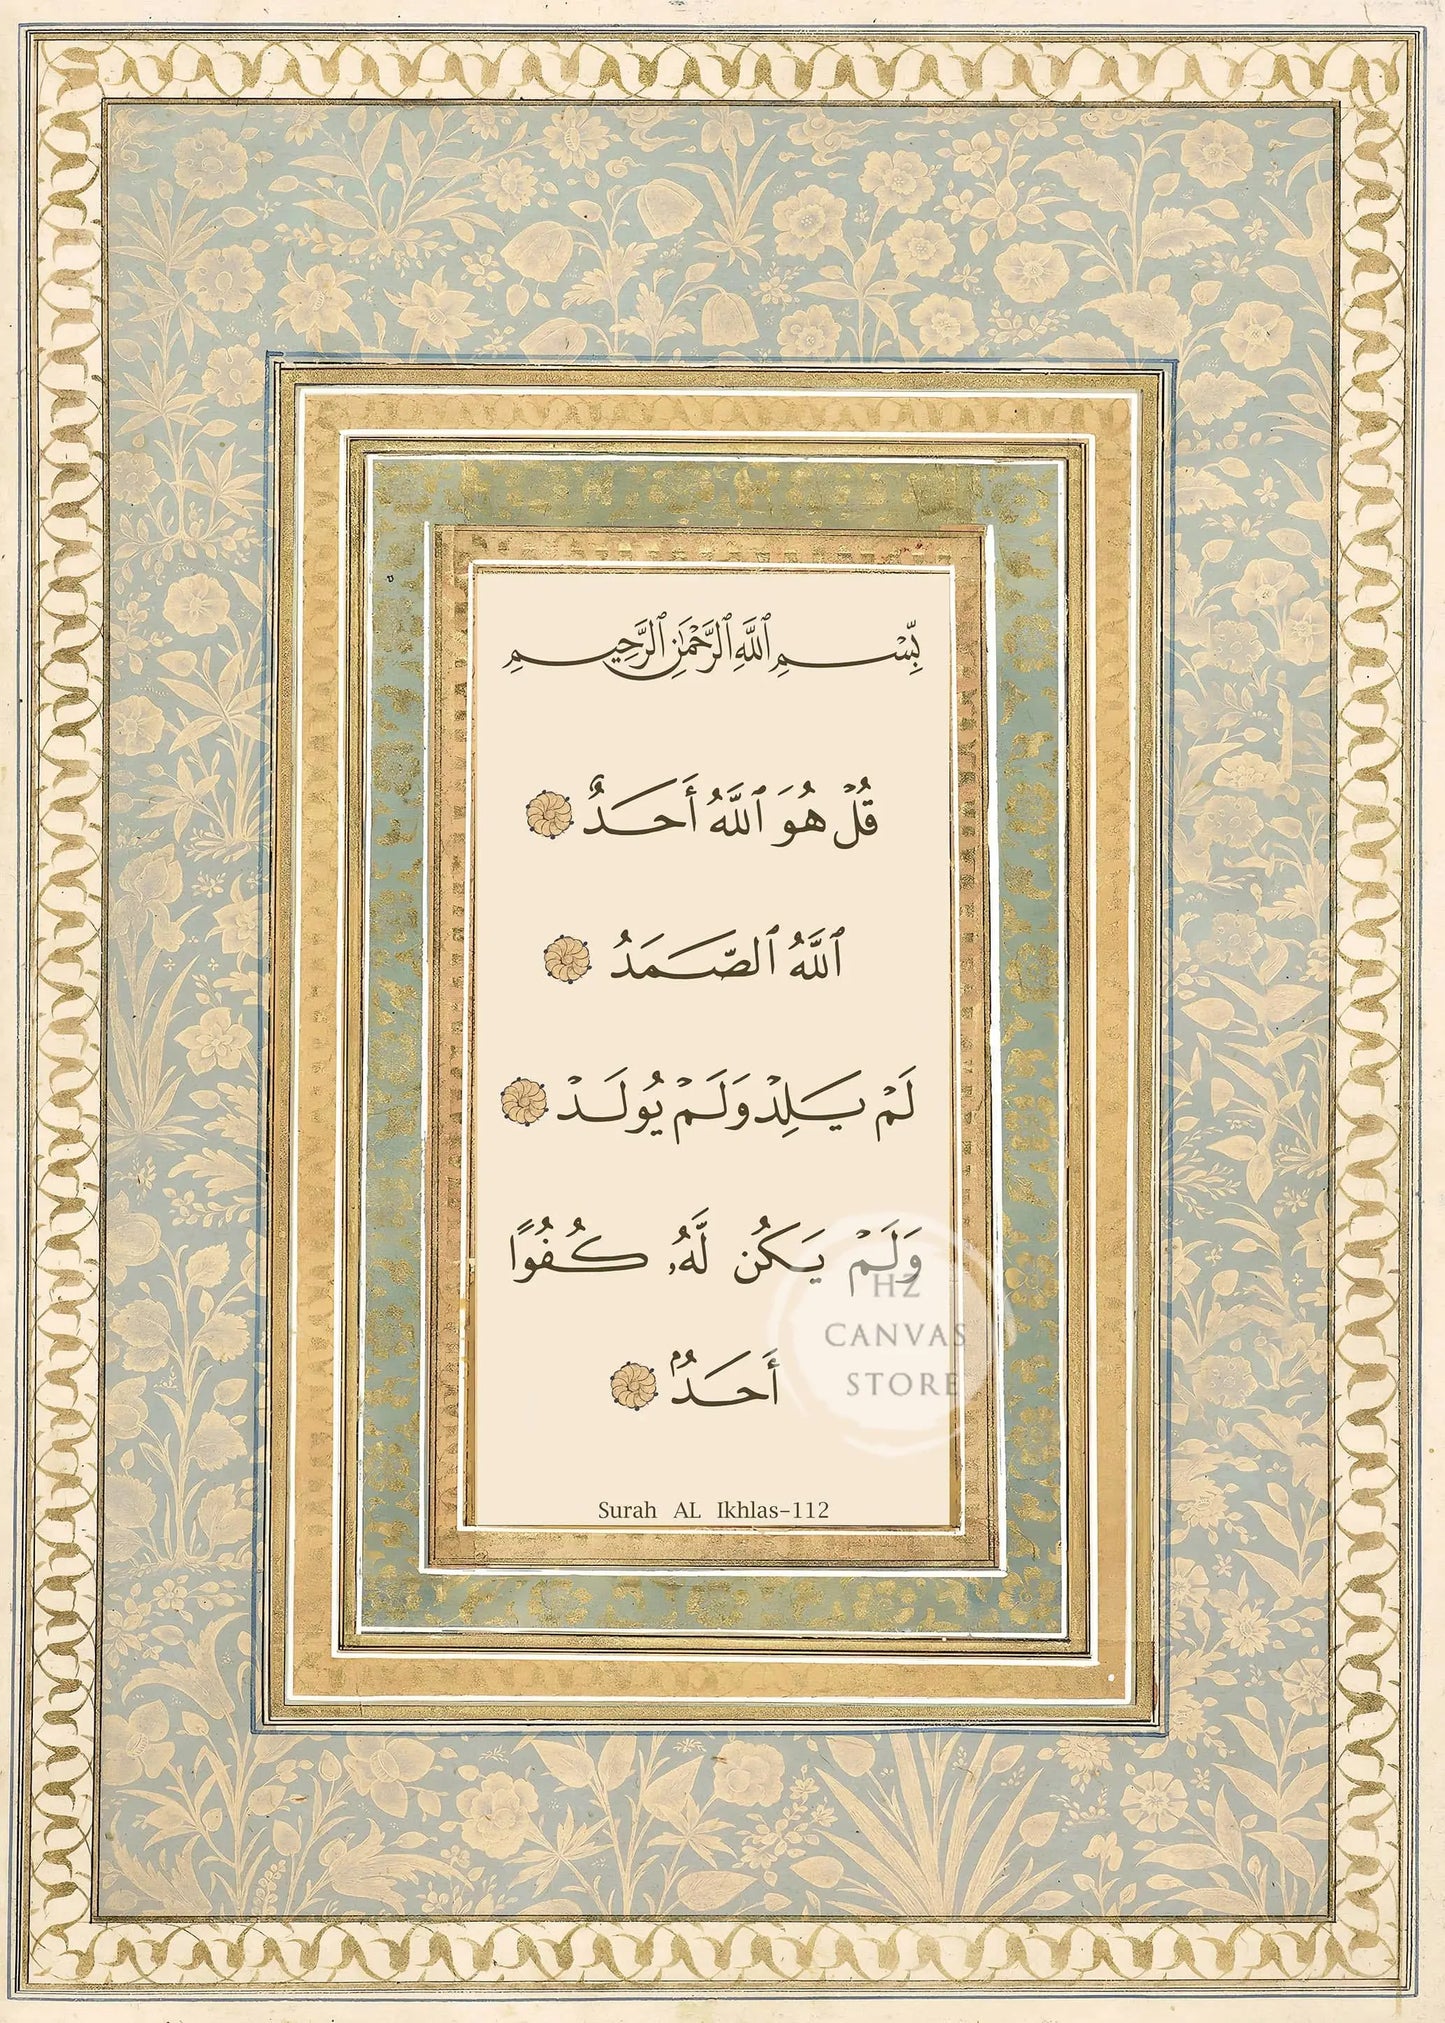 بِّسْمِ ٱللَّهِ ٱلرَّحْمَٰنِ ٱلرَّحِيمِ
قُلْ هُوَ ٱللَّهُ أَحَدٌ
ٱللَّهُ ٱلصَّمَدُ
لَمْ يَلِدْ وَلَمْ يُولَدْ
وَلَمْ يَكُن لَّهُۥ كُفُوًا
أَحَدٌۢ
HZ
CANVAS
STORE
Surah AL Ikhlas-112